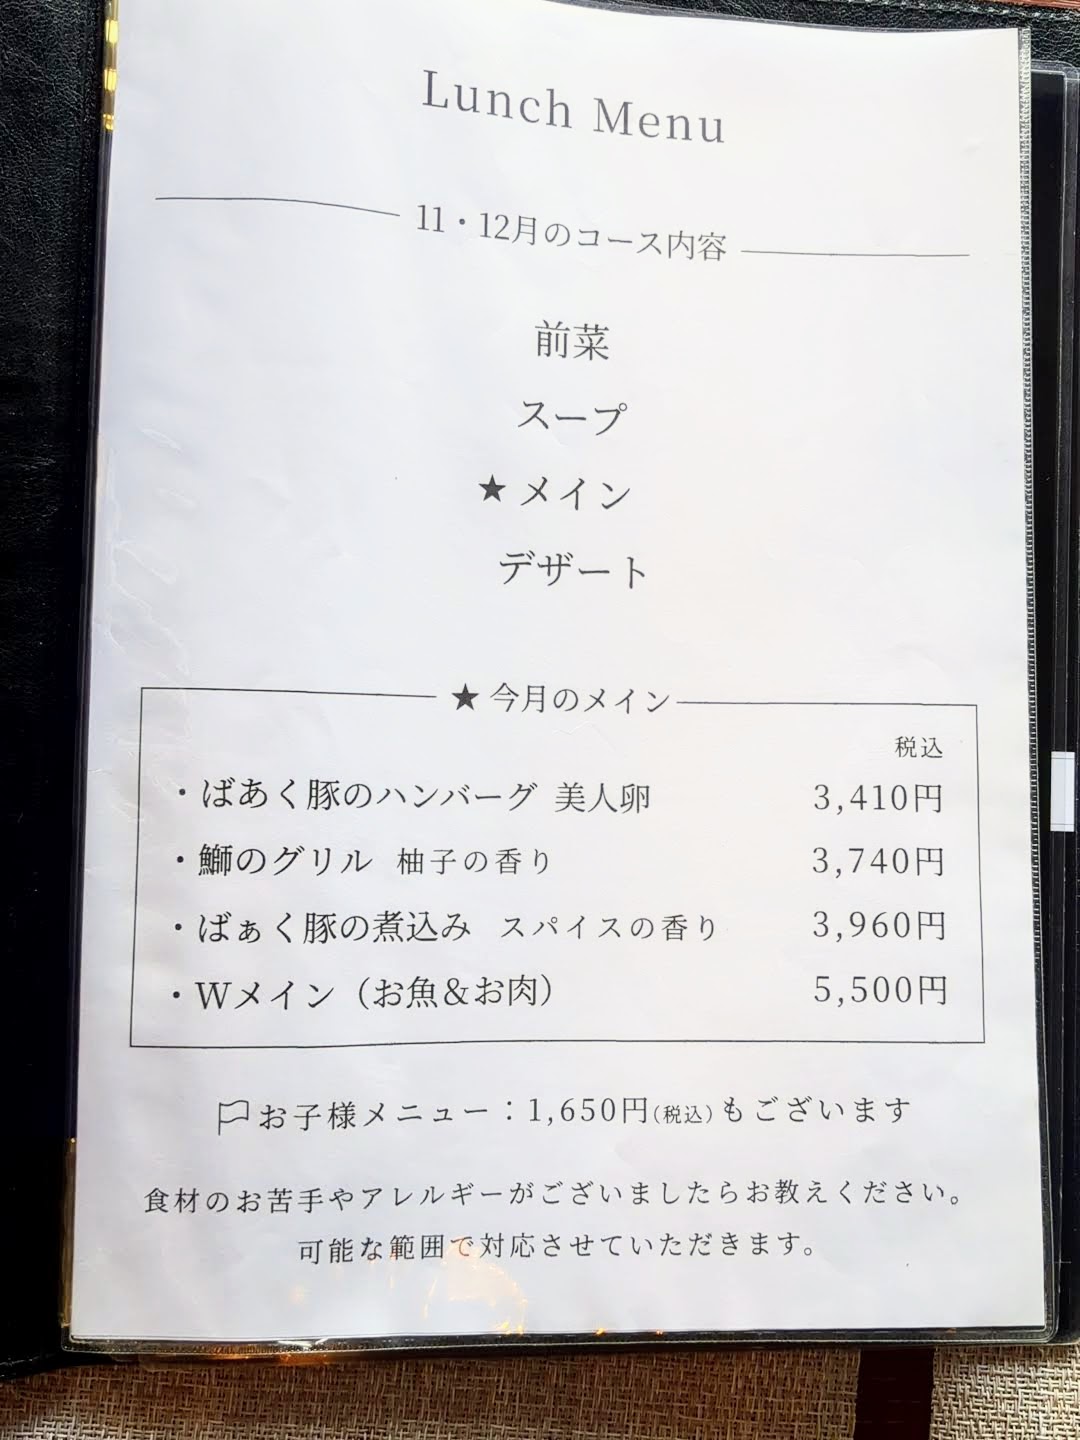 Lunch Menu
11・12月のコース内容
前菜
スープ
★メイン
デザート
★今月のメイン
税込
・ばあく豚のハンバーグ 美人卵 3,410円
・鰤のグリル 柚子の香り 3,740円
・ばぁく豚の煮込み スパイスの香り 3,960円
・Wメイン（お魚＆お肉） 5,500円
お子様メニュー：1,650円(税込)もございます
食材のお苦手やアレルギーがございましたらお教えください。
可能な範囲で対応させていただきます。